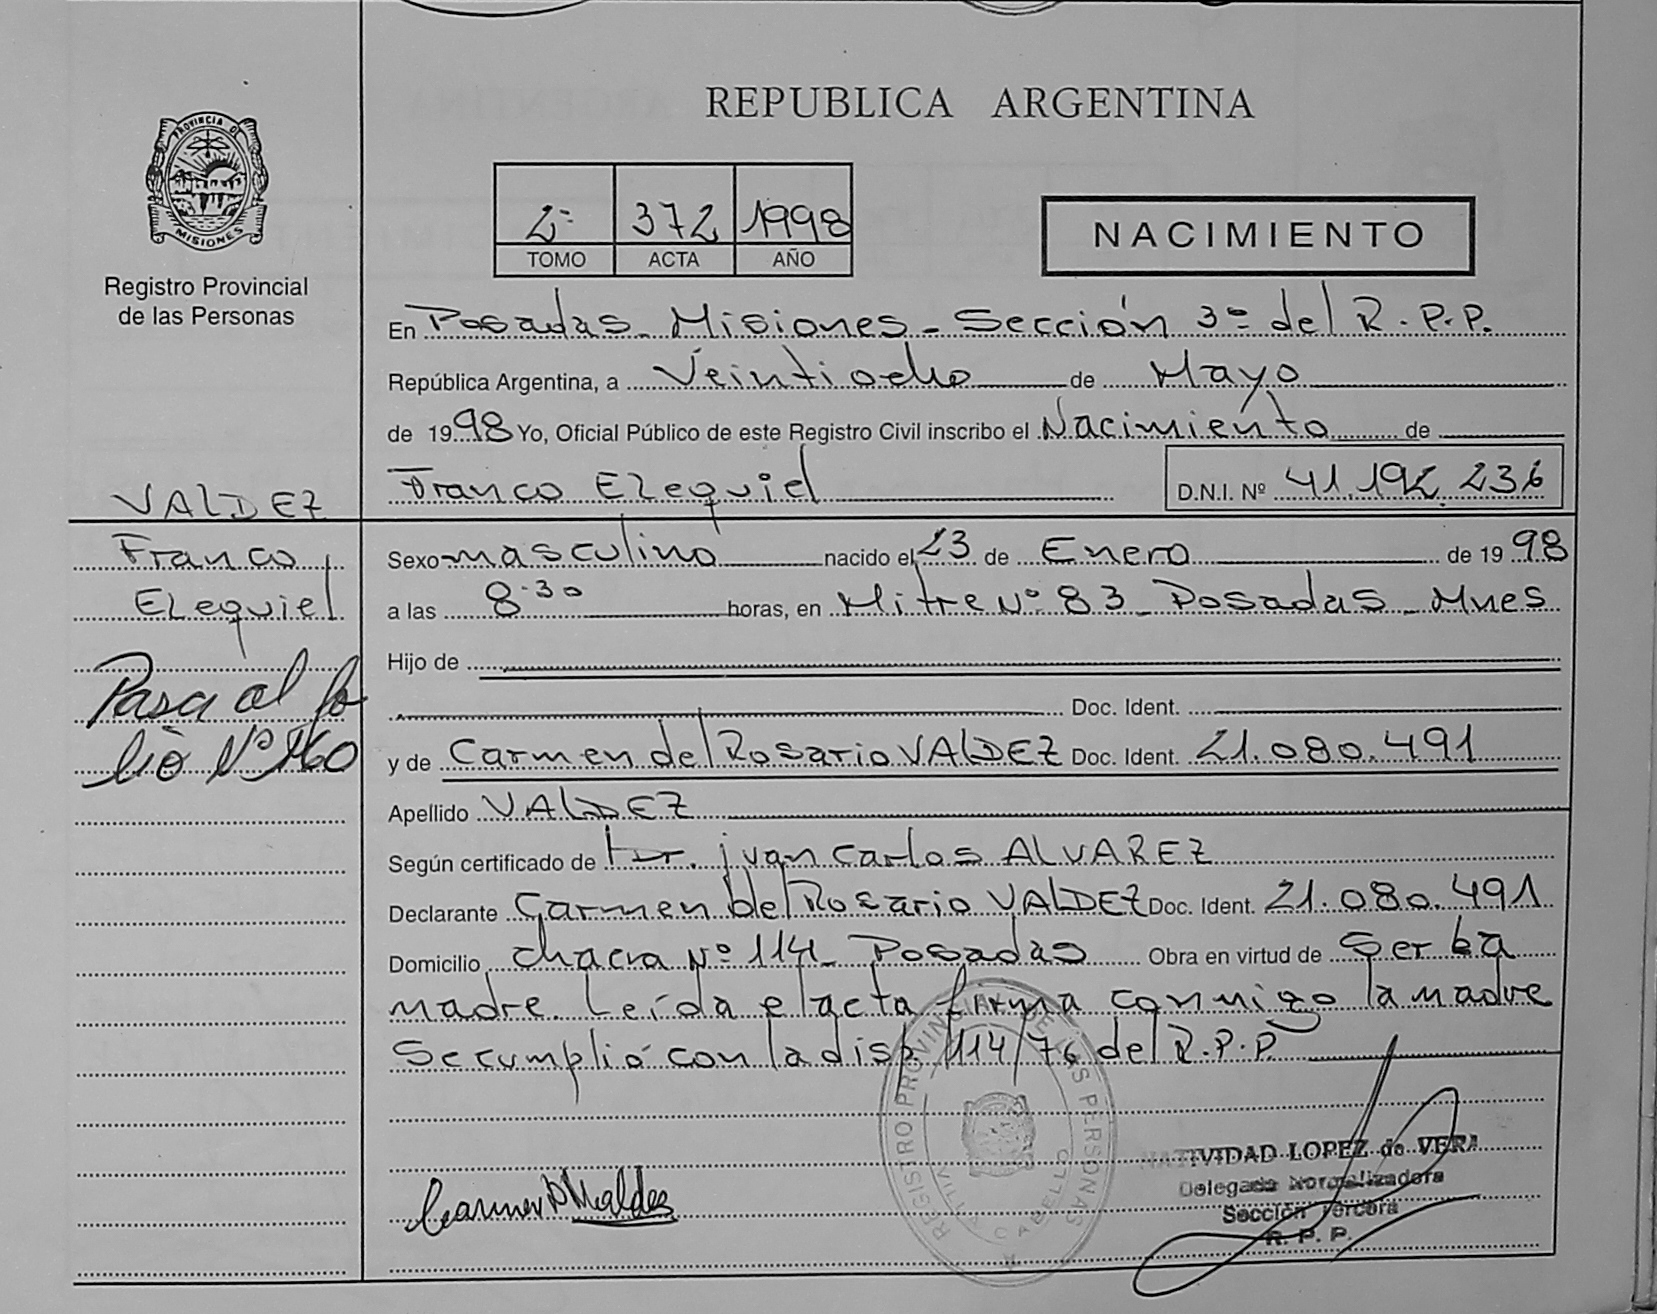 REPUBLICA ARGENTINA
PROVINCIA DE
MISIONES
Registro Provincial
de las Personas
2º 372 1998
TOMO ACTA AÑO
NACIMIENTO
En Posadas - Misiones - Sección 3º del R.P.P.
República Argentina, a Veintiocho de Mayo
de 1998 Yo, Oficial Público de este Registro Civil inscribo el Nacimiento de
Franco Ezequiel D.N.I. Nº 41.192.236
VALDEZ
Franco
Ezequiel
Pasa al fo
lio Nº 160
Sexo masculino nacido el 23 de Enero de 1998
a las 8.30 horas, en Mitre Nº 83 - Posadas - Mnes
Hijo de
Doc. Ident.
y de Carmen del Rosario VALDEZ Doc. Ident. 21.080.491
Apellido VALDEZ
Según certificado de Dr. Juan Carlos ALVAREZ
Declarante Carmen del Rosario VALDEZ Doc. Ident. 21.080.491
Domicilio chacra Nº 114 - Posadas Obra en virtud de Ser la
madre. Leída el acta firma conmigo la madre
Se cumplió con la disp. 114/76 del R.P.P.
REGISTRO PROVINCIAL DE LAS PERSONAS
VILLA CABELLO
Carmen Valdez
NATIVIDAD LOPEZ de VERA
Delegada Normalizadora
Sección Tercera
R. P. P.